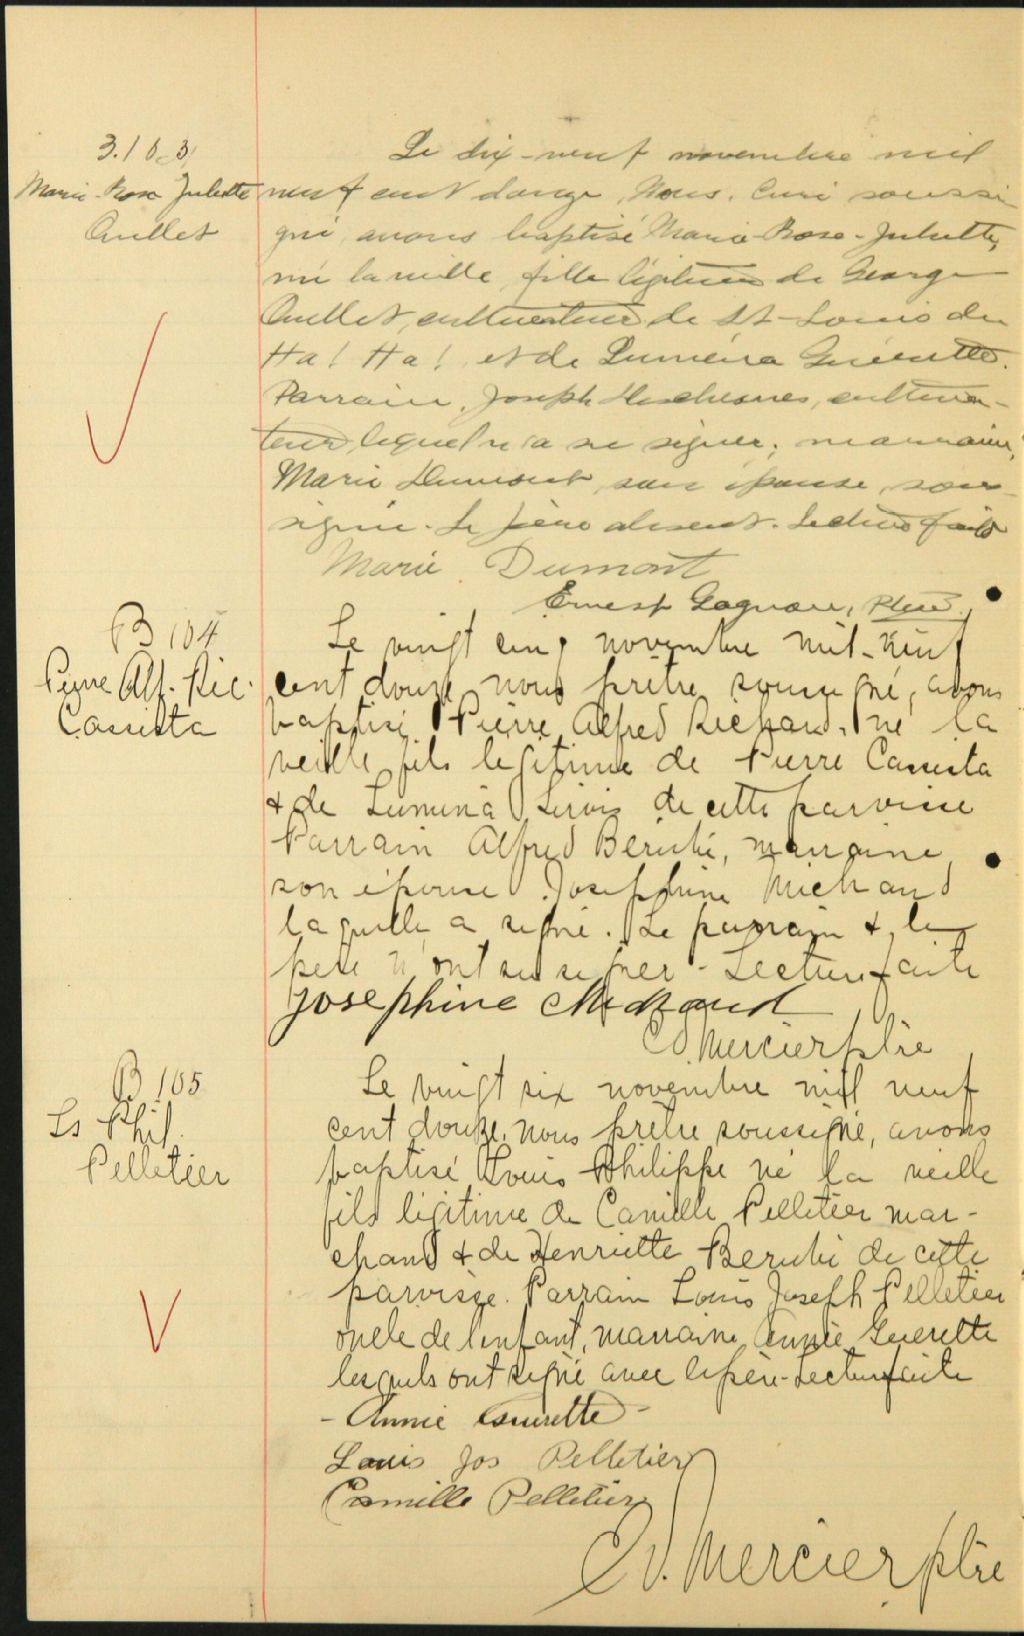 B.103
Marie-Rose Juliette
Ouellet
Le dix-neuf novembre mil
neuf cent douze, Nous, Curé soussi
gné, avons baptisé Marie-Rose-Juliette,
née la veille, fille légitime de George
Ouellet, cultivateur de St-Louis du
Ha! Ha!, et de Luména Guérette.
Parrain, Joseph Deschesnes, cultiva-
teur lequel n'a su signer; marraine,
Marie Dumont, son épouse, sous-
signée. Le père absent. Lecture faite
Marie Dumont
Ernest Gagnon, Ptre
B 104
Pierre Alf. Ric.
Cassista
Le vingt cinq novembre mil-neuf
cent douze, nous prêtre soussigné, avons
baptisé Pierre Alfred Richard. né la
veille fils legitime de Pierre Cassista
& de Lumina Sirois de cette paroisse
Parrain Alfred Berubé, marraine
son épouse Josephine Michaud
laquelle a signé. Le parrain & le
père n'ont su signer - Lecture faite
Josephine Michaud
C V Mercier ptre
B 105
Ls Phil.
Pelletier
Le vingt six novembre mil neuf
cent douze, nous prêtre soussigné, avons
baptisé Louis Philippe né la veille
fils légitime de Camille Pelletier mar-
chand & de Henriette Berubé de cette
paroisse. Parrain Louis Joseph Pelletier
oncle de l'enfant, marraine Annie Guerette
lesquels ont signé avec le père - Lecture faite
- Annie Guerette -
Louis Jos Pelletier
Camille Pelletier
C V. Mercier ptre